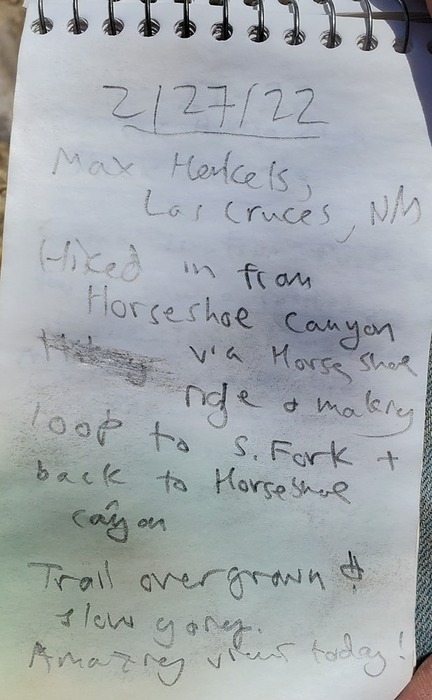 2/27/22
Max Henkels,
Las Cruces, NM
Hiked in from
Horseshoe canyon
via Horse shoe
ridge & making
loop to S. Fork +
back to Horseshoe
canyon
Trail overgrown &
slow going.
Amazing views today!